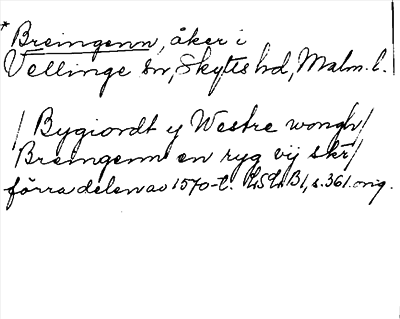 * Breingenn, åker i
Vellinge sn, Skytts hd, Malm. l.
/ Bygiordt y Westre wongh /
Breingenn en ryg vij skr /
förra delen av 1570-t. B1, s. 361. orig.